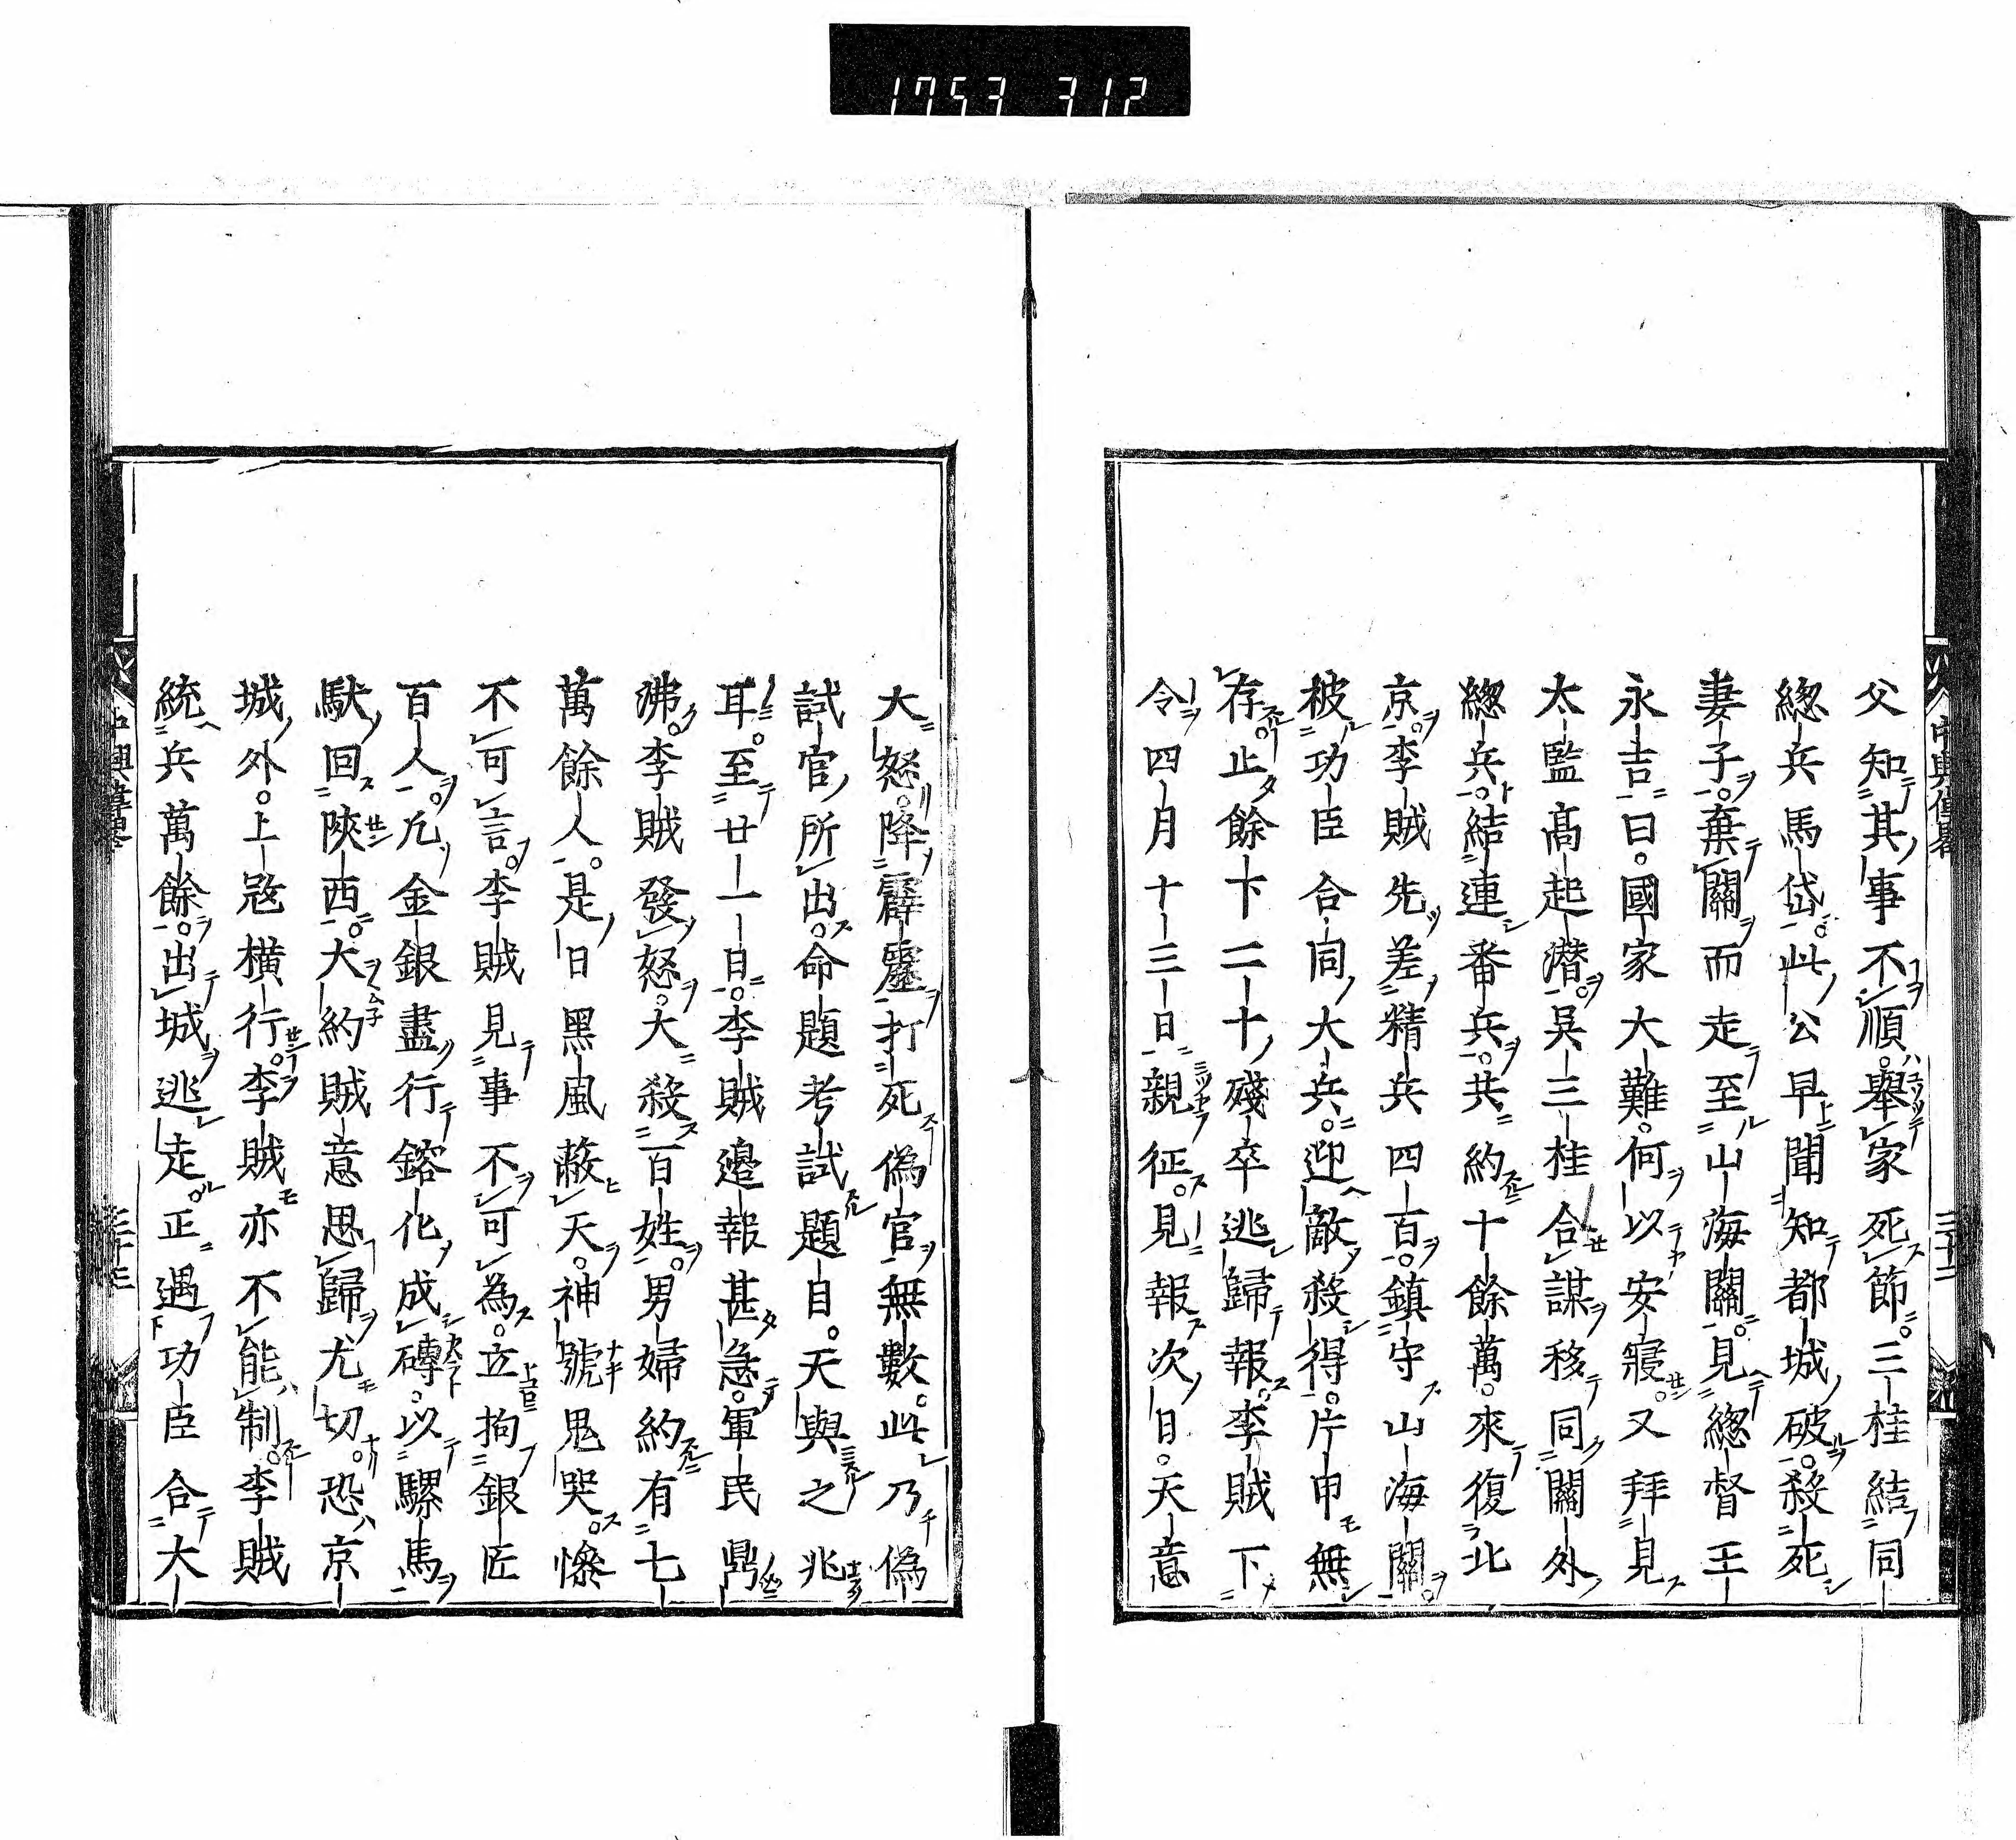 1753 312
父知其事不順。舉家死節。三桂結同
緫兵馬岱。此公早聞知都城破。殺死
妻子。棄關而走至山海關。見緫督王
永吉曰。國家大難。何以安寢。又拜見
太監高起潛。吳三桂合謀移同關外
緫兵。結連番兵。共約十餘萬。來復北
京。李賊先差精兵四百。鎮守山海關。
被功臣合同大兵。迎敵殺得。片甲無
存。止餘下二十殘卒逃歸報。李賊下
令四月十三日親征。見報次日。天意
中興偉畧
三十二
大怒。降霹靂打死偽官無數。此乃偽
試官所出。命題考試題目。天與之兆
耳。至廿一日。李賊邉報甚急。軍民鼎
沸。李賊發怒。大殺百姓。男婦約有七
萬餘人。是日黑風蔽天。神號鬼哭。慘
不可言。李賊見事不可為。立拘銀匠
百人。凡金銀盡行鎔化成磚。以騾馬
馱回陝西。大約賊意思歸尤切。恐京
城外。上寇橫行。李賊亦不能制。李賊
統兵萬餘。出城逃走。正遇功臣合大
中興偉畧
三十三